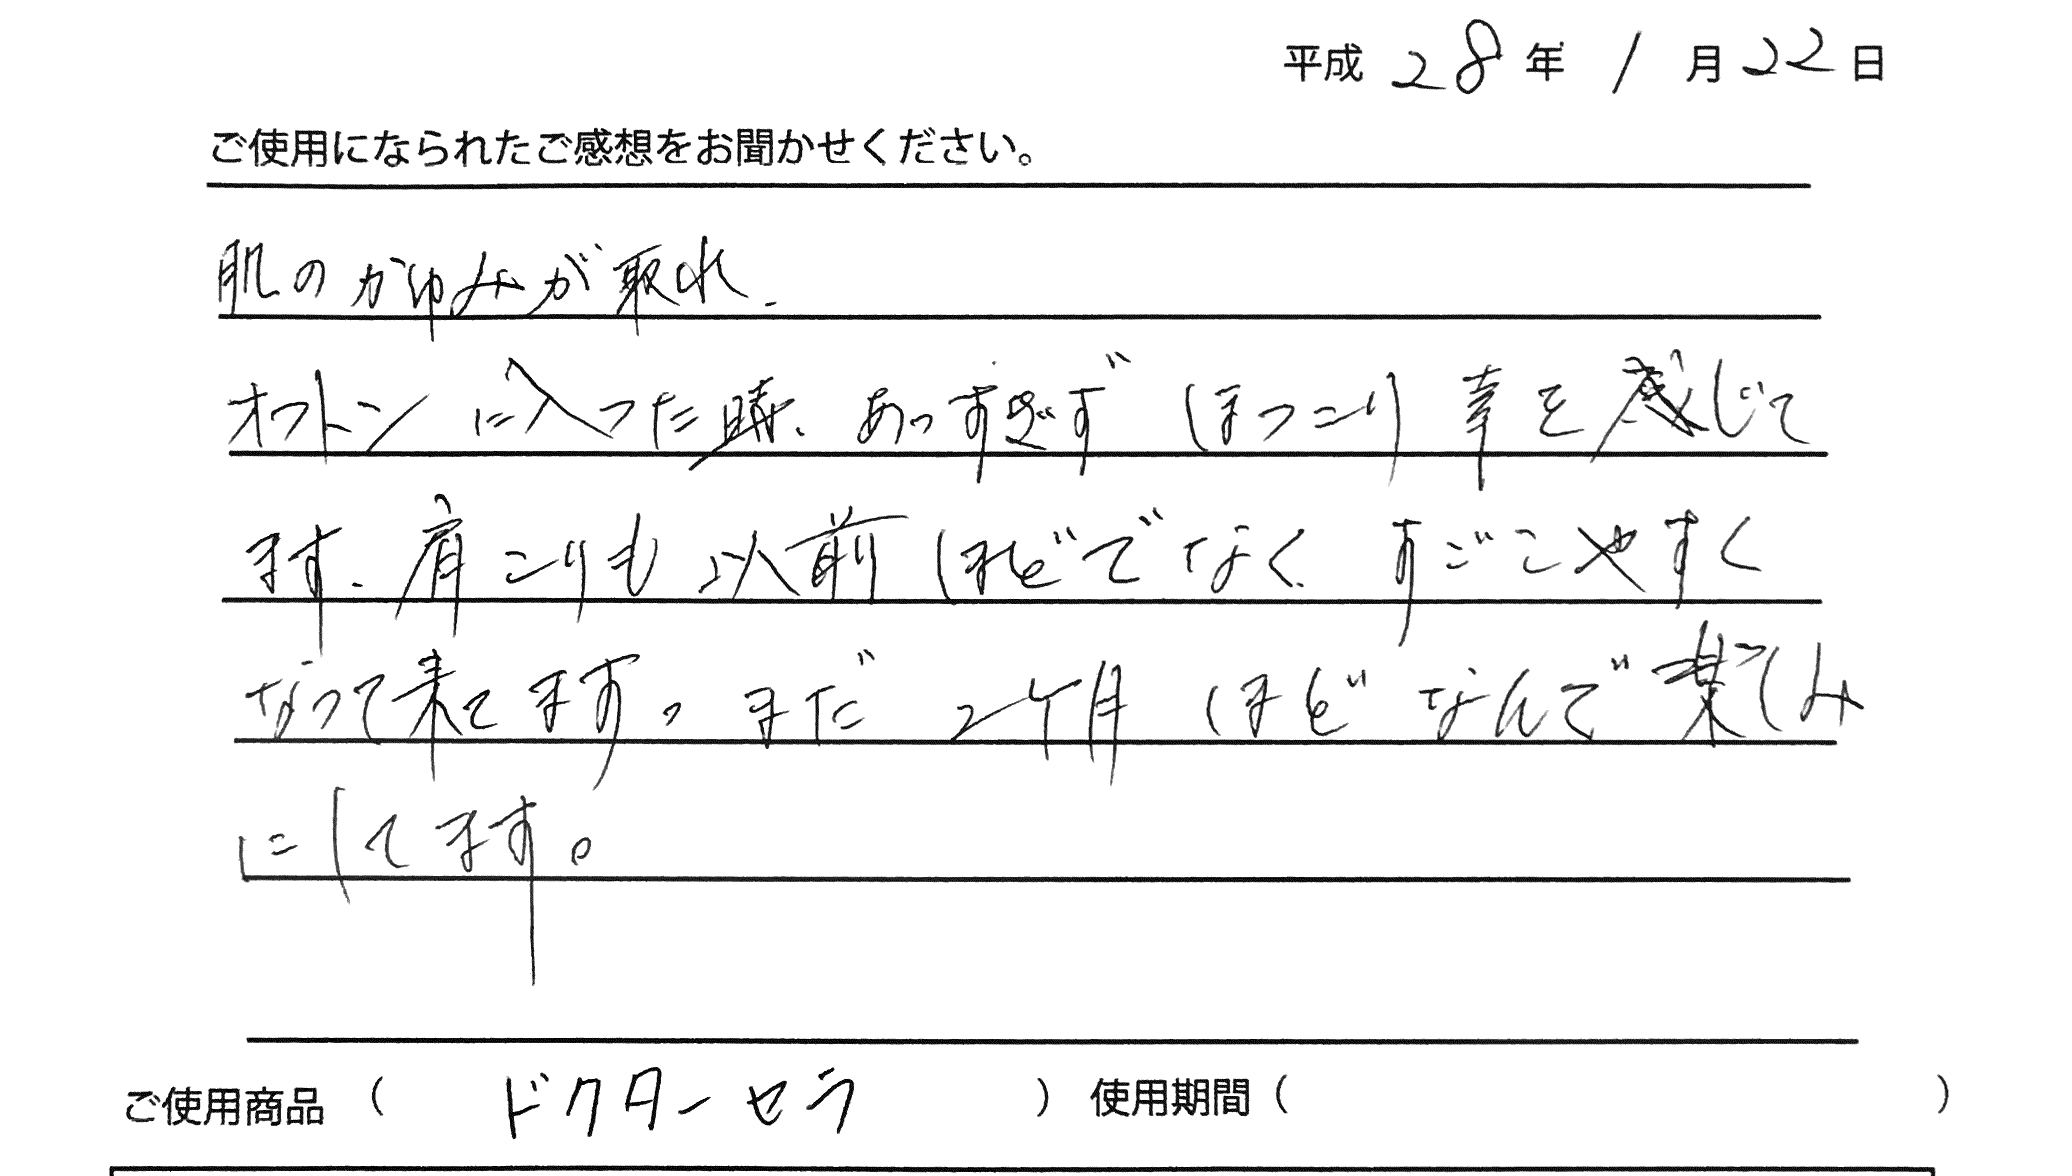 平成 28年 1月22日
ご使用になられたご感想をお聞かせください。
肌のかゆみが取れ、
オフトンに入った時、あっすぎず ほっこり 幸を感じて
ます、肩こりも以前ほどでなく、すごこやすく
なって来てます。まだ 2ケ月 ほど なんで 楽しみ
にしてます。
ご使用商品 ( ドクターセラ ) 使用期間 ( )